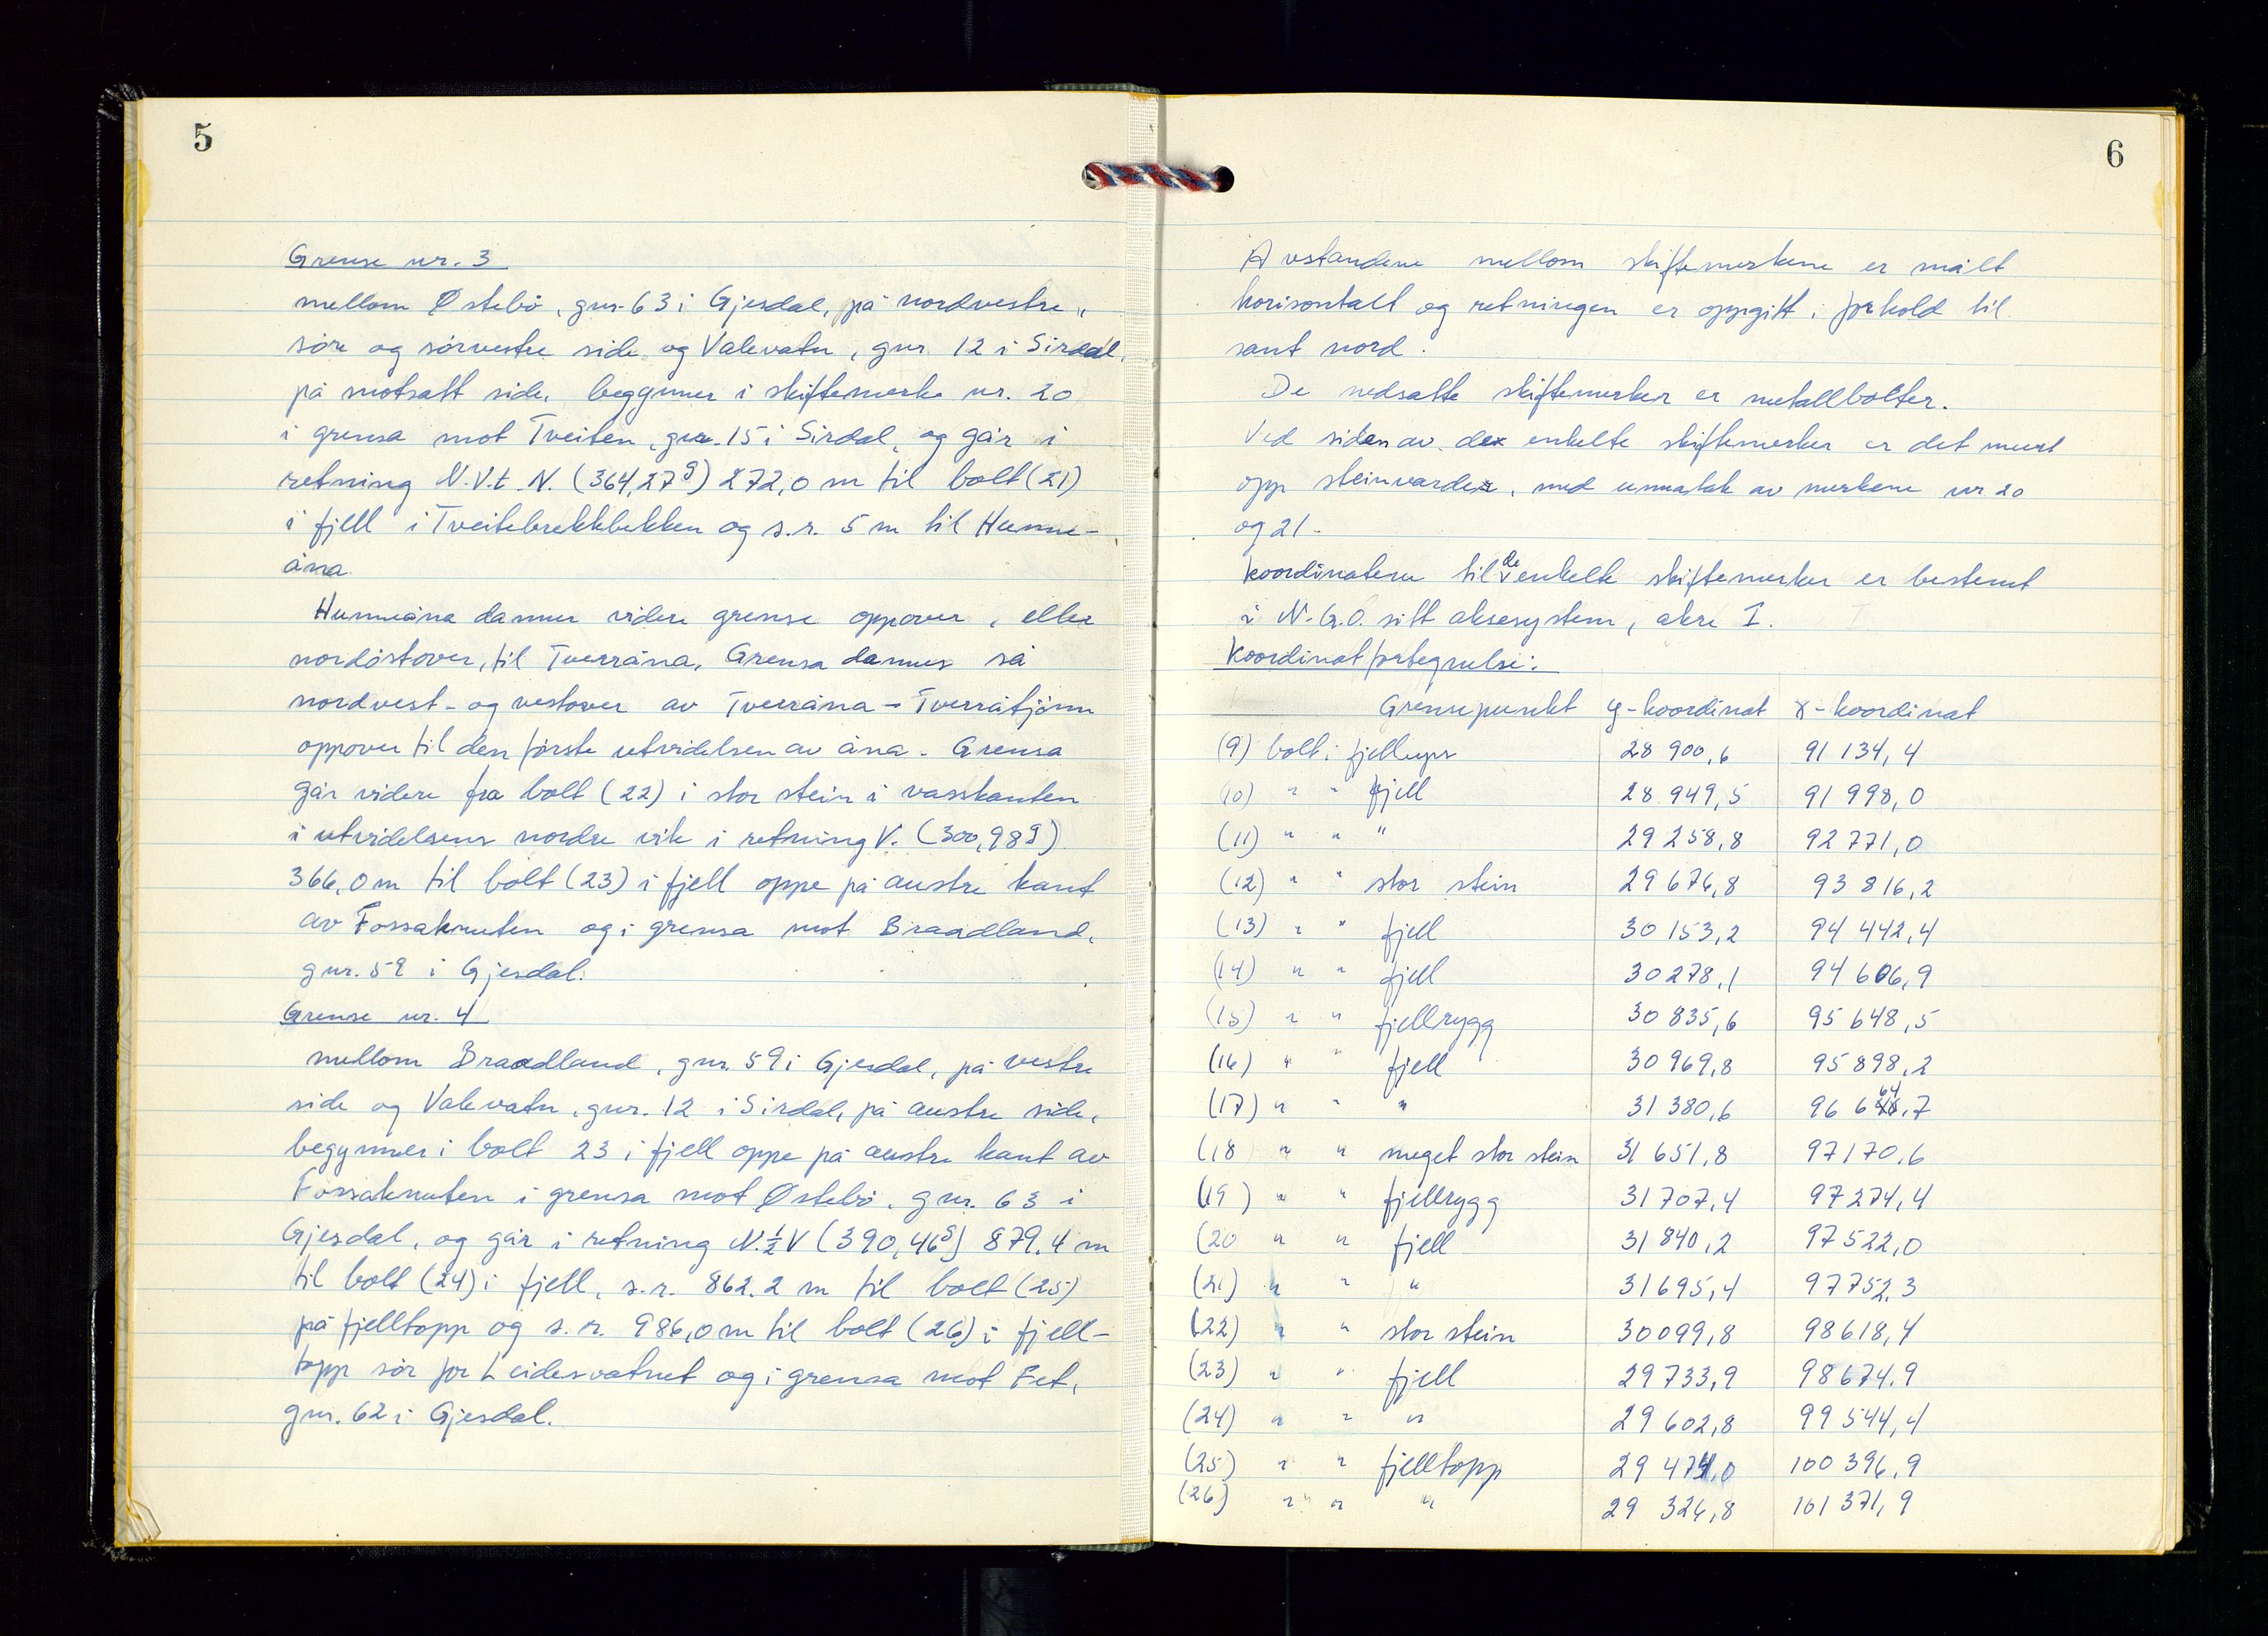 5
Grense nr. 3
mellom Østebö, gnr. 63 i Gjesdal, på nordvestre,
söre og sörvestre side og Valevatn, gnr. 12 i Sirdal,
på motsatt side, begynner i skiftemerke nr. 20
i grensa mot Tveiten, gnr. 15 i Sirdal, og går i
retning N.V.t.N. (364,27g) 272,0 m til bolt (21)
i fjell i Tveitebrekkbekken og s.r. 5 m til Hunne-
åna.
Hunneåna danner videre grense oppover, eller
nordöstover, til Tverråna. Grensa dannes så
nordvest- og vestover av Tverråna - Tverråtjönn
oppover til den förste utvidelsen av åna. Grensa
går videre fra bolt (22) i stor stein i vasskanten
i utvidelsens nordre vik i retning V. (300,98g)
366,0 m til bolt (23) i fjell oppe på austre kant
av Fossaknuten og i grensa mot Braadland,
gnr. 59 i Gjesdal.
Grense nr. 4
mellom Braadland, gnr. 59 i Gjesdal, på vestre
side og Valevatn, gnr. 12 i Sirdal, på austre side,
begynner i bolt 23 i fjell oppe på austre kant av
Fossaknuten i grensa mot Østebö, gnr. 63 i
Gjesdal, og går i retning N.½V (390,46g) 879,4 m
til bolt (24) i fjell, s.r. 862.2 m til bolt (25)
på fjelltopp og s.r. 986,0 m til bolt (26) i fjell-
topp sör for Leidesvatnet og i grensa mot Fet,
gnr. 62 i Gjesdal.
6
Avstandene mellom skiftemerkene er målt
horisontalt og retningen er oppgitt i forhold til
sant nord.
De nedsatte skiftemerker er metallbolter.
Ved siden av de enkelte skiftemerker er det murt
opp steinvarder, med unntak av merkene nr 20
og 21.
Koordinatene til de enkelte skiftemerker er bestemt
i N.G.O. sitt aksesystem, akse I.
Koordinatfortegnelse:
Grensepunkt y-koordinat x-koordinat
(9) bolt i fjellups 28 900,6 91 134,4
(10) " " fjell 28 949,5 91 998,0
(11) " " " 29 258,8 92 771,0
(12) " " stor stein 29 676,8 93 816,2
(13) " " fjell 30 153,2 94 442,4
(14) " " fjell 30 278,1 94 606,9
(15) " " fjellrygg 30 835,6 95 648,5
(16) " " fjell 30 969,8 95 898,2
(17) " " " 31 380,6 96 664,7
(18 " " meget stor stein 31 651,8 97 170,6
(19) " " fjellrygg 31 707,4 97 274,4
(20 " " fjell 31 840,2 97 522,0
(21) " " " 31 695,4 97 752,3
(22) " " stor stein 30 099,8 98 618,4
(23) " " fjell 29 733,9 98 674,9
(24) " " " 29 602,8 99 544,4
(25) " " fjelltopp 29 474,0 100 396,9
(26) " " " 29 326,8 101 371,9